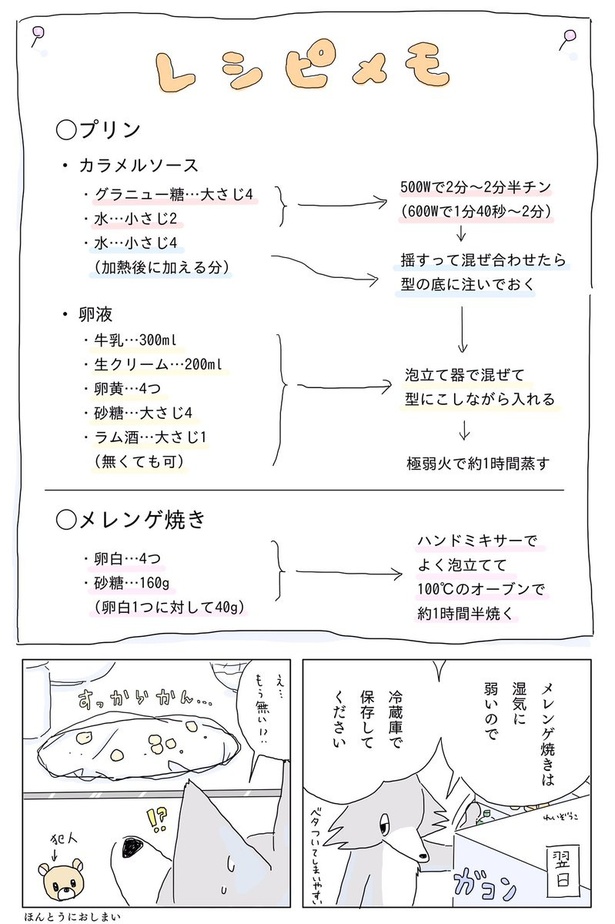 レシピメモ
〇プリン
・カラメルソース
・グラニュー糖…大さじ4
・水…小さじ2
・水…小さじ4
(加熱後に加える分)
500Wで2分～2分半チン
(600Wで1分40秒～2分)
揺すって混ぜ合わせたら
型の底に注いでおく
・卵液
・牛乳…300ml
・生クリーム…200ml
・卵黄…4つ
・砂糖…大さじ4
・ラム酒…大さじ1
(無くても可)
泡立て器で混ぜて
型にこしながら入れる
極弱火で約1時間蒸す
〇メレンゲ焼き
・卵白…4つ
・砂糖…160g
(卵白1つに対して40g)
ハンドミキサーで
よく泡立てて
100℃のオーブンで
約1時間半焼く
メレンゲ焼きは
湿気に
弱いので
冷蔵庫で
保存して
ください
ベタついてしまいやすい
れいぞうこ
翌日
ガコン
え…
もう無い!?
すっからかん…
!?
犯人
ほんとうにおしまい